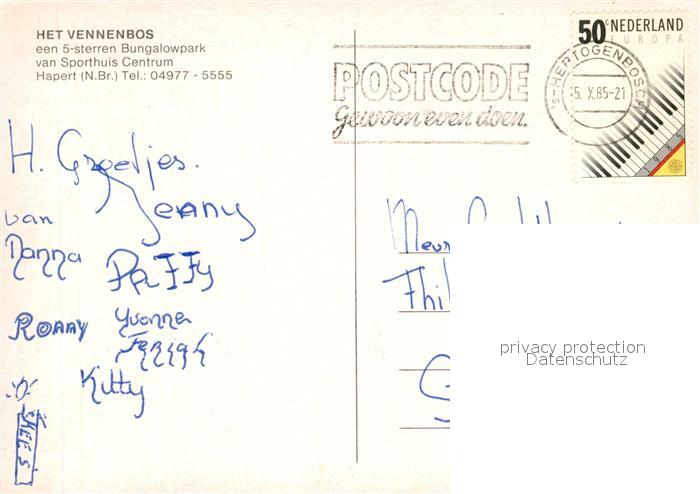 HET VENNENBOS
een 5-sterren Bungalowpark
van Sporthuis Centrum
Hapert (N.Br.) Tel.: 04977 - 5555
POSTCODE
Gewoon even doen.
's-HERTOGENBOSCH
5. X.85-21
50c NEDERLAND
EUROPA
1985
H. Groetjes.
Jenny
van
Ronny
Yvonne
Kitty
KEES
privacy protection
Datenschutz